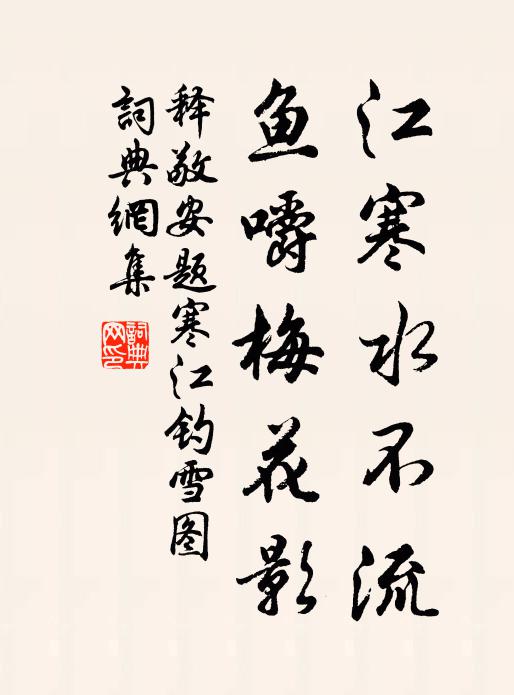 江寒水不流
鱼嚼梅花影
释敬安题寒江钓雪图
詞典網集
詞典网印